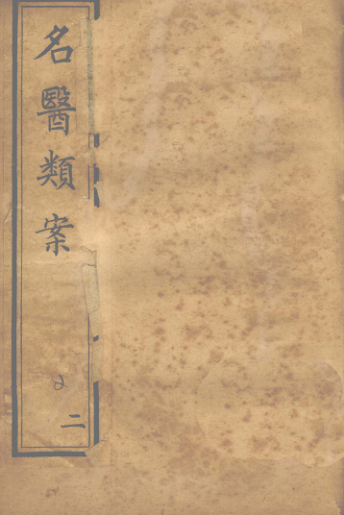 名醫類案
2
二